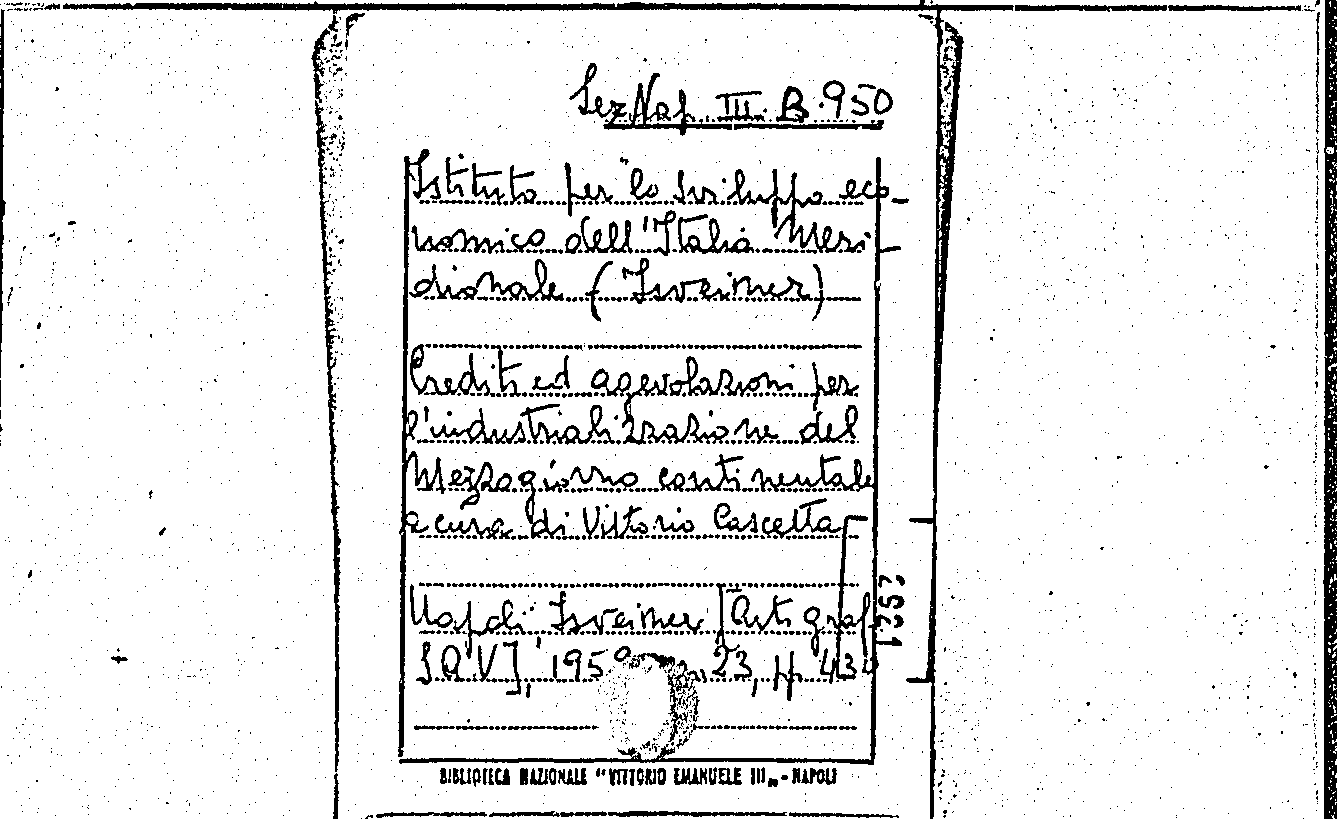 Sez Nap. III. B. 950
Istituto per lo sviluppo eco-
nomico dell'Italia Meri-
dionale (Isveimer)
Crediti ed agevolazioni per
l'industrializzazione del
Mezzogiorno continentale
a cura di Vittorio Cascetta
Napoli, Isveimer [Arti graf.
S.A.V.], 23, pp. 43
BIBLIOTECA NAZIONALE "VITTORIO EMANUELE III„ - NAPOLI